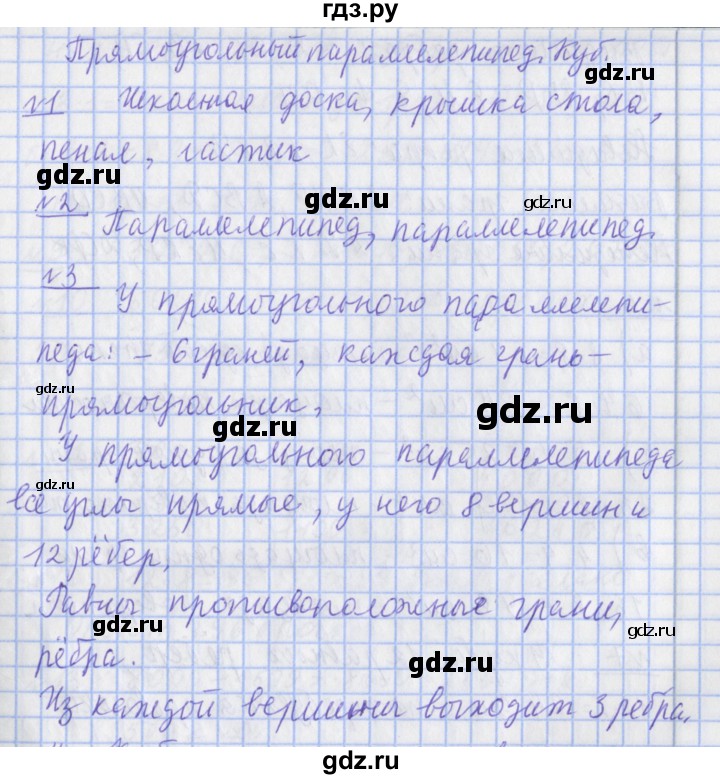 гдз.ру
Прямоугольный параллелепипед. Куб.
gdz.ru
№1 Школьная доска, крышка стола,
пенал, ластик
gdz.ru
gdz.ru
№2 Параллелепипед, параллелепипед.
gdz.ru
№3
У прямоугольного параллелепи-
педа: – 6 граней, каждая грань –
gdz.ru
прямоугольник,
gdz.ru
gdz.ru
У прямоугольного параллелепипеда
gdz.ru
все углы прямые, у него 8 вершин и
12 рёбер,
Равны противоположные грани,
gdz.ru
рёбра.
gdz.ru
Из каждой вершины выходит 3 ребра,
gdz.ru